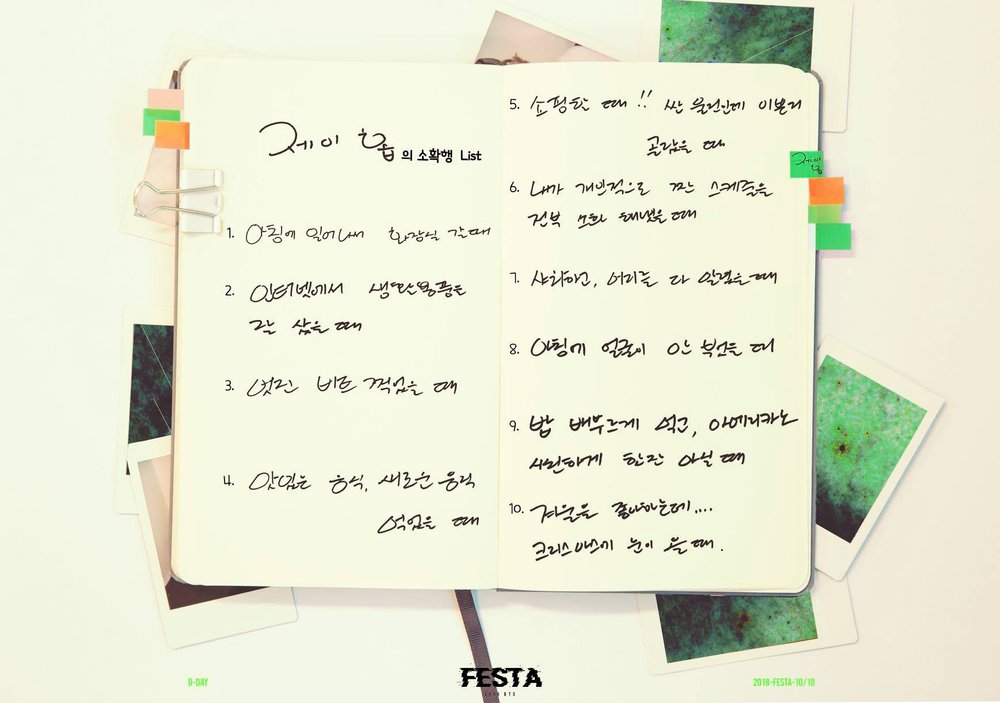 제이홉의 소확행 List
1. 아침에 일어나서 화장실 갈 때
2. 인터넷에서 생필용품을
잘 샀을 때
3. 멋진 비트 찍었을 때
4. 맛있는 음식, 새로운 음식
먹었을 때
5. 쇼핑할 때!! 싼 물건인데 이쁜거
골랐을 때
6. 내가 개인적으로 짠 스케줄을
전부 소화 해냈을 때
7. 샤워하고, 머리를 다 말렸을 때
8. 아침에 얼굴이 안 부었을 때
9. 밥 배부르게 먹고, 아메리카노
시원하게 한잔 마실 때
10. 겨울을 좋아하는데....
크리스마스에 눈이 올 때.
제이
홉
D-DAY
FESTA
2018 BTS
2018-FESTA-10/10